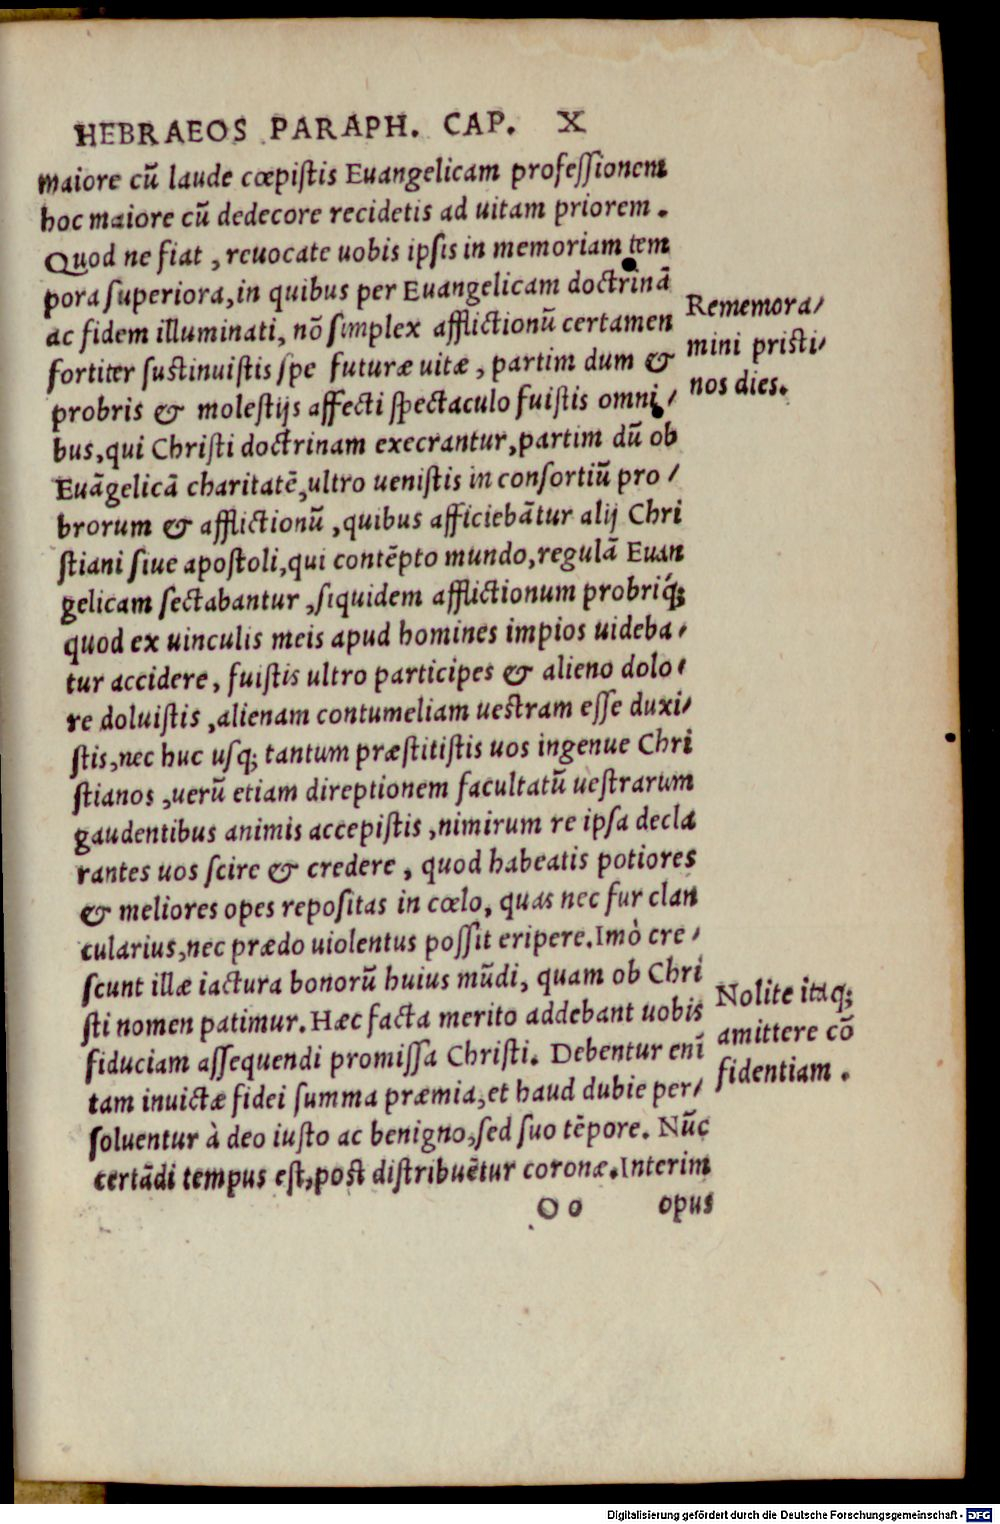 HEBRAEOS PARAPH. CAP. X
maiore cū laude cœpiſtis Euangelicam profeſſionem
hoc maiore cū dedecore recidetis ad uitam priorem.
Quod ne fiat, reuocate uobis ipſis in memoriam tem
pora ſuperiora, in quibus per Euangelicam doctrinā
ac fidem illuminati, nō ſimplex afflictionū certamen
fortiter ſuſtinuiſtis ſpe futuræ uitæ, partim dum &
probris & moleſtijs affecti ſpectaculo fuiſtis omni/
bus, qui Chriſti doctrinam execrantur, partim dū ob
Euāgelicā charitatē, ultro ueniſtis in conſortiū pro/
brorum & afflictionū, quibus afficiebātur alij Chri
ſtiani ſiue apoſtoli, qui contēpto mundo, regulā Euan
gelicam ſectabantur, ſiquidem afflictionum probriq́;
quod ex uinculis meis apud homines impios uideba/
tur accidere, fuiſtis ultro participes & alieno dolo/
re doluiſtis, alienam contumeliam ueſtram eſſe duxi/
ſtis, nec huc uſq; tantum præſtitiſtis uos ingenue Chri
ſtianos, uerū etiam direptionem facultatū ueſtrarum
gaudentibus animis accepiſtis, nimirum re ipſa decla
rantes uos ſcire & credere, quod habeatis potiores
& meliores opes repoſitas in cœlo, quas nec fur clan
cularius, nec prædo uiolentus poſſit eripere. Imò cre/
ſcunt illæ iactura bonorū huius mūdi, quam ob Chri
ſti nomen patimur. Hæc facta merito addebant uobis
fiduciam aſſequendi promiſſa Chriſti. Debentur enī
tam inuictæ fidei ſumma præmia, et haud dubie per/
ſoluentur à deo iuſto ac benigno, ſed ſuo tēpore. Nūc
certādi tempus eſt, poſt diſtribuētur coronæ. Interim
Oo opus
Rememora/
mini priſti/
nos dies.
Nolite itaq;
amittere cō
fidentiam.
Digitalisierung gefördert durch die Deutsche Forschungsgemeinschaft - DFG